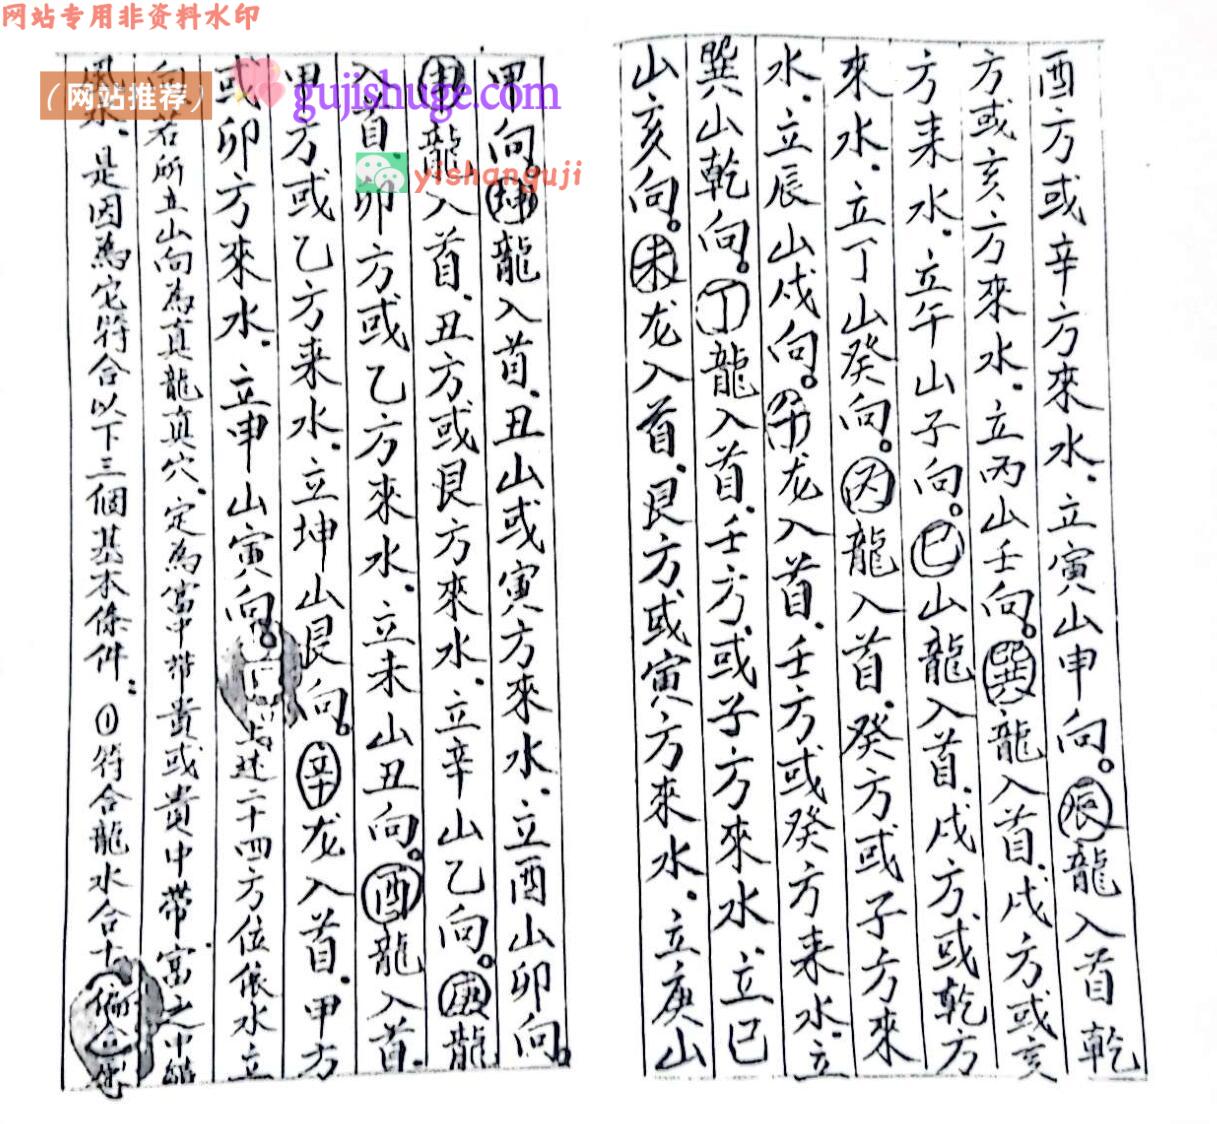 网站专用非资料水印
酉方或辛方來水.立寅山申向。辰龍入首乾
方或亥方來水.立丙山壬向。巽龍入首.戌方或亥
方来水.立午山子向。巳山龍入首.戌方或乾方
來水.立丁山癸向。丙龍入首.癸方或子方來
水.立辰山戌向。午龙入首.壬方或癸方来水.立
巽山乾向。丁龍入首.壬方.或子方來水.立巳
山亥向。未龙入首.艮方.或寅方來水.立庚山
甲向。坤龍入首.丑山或寅方來水.立酉山卯向。
申龍入首.丑方或艮方來水.立辛山乙向。庚龍
入首.卯方或乙方來水.立未山丑向。酉龍入首.
甲方或乙方来水.立坤山艮向。辛龙入首.甲方
或卯方來水.立申山寅向。上述二十四方位依水立
向.若所立山向為真龍真穴.定為富中带贵或貴中带富之中
風水.是因為它符合以下三個基本條件:①符合龍水合十
(网站推荐)
gujishuge.com
yishanguji